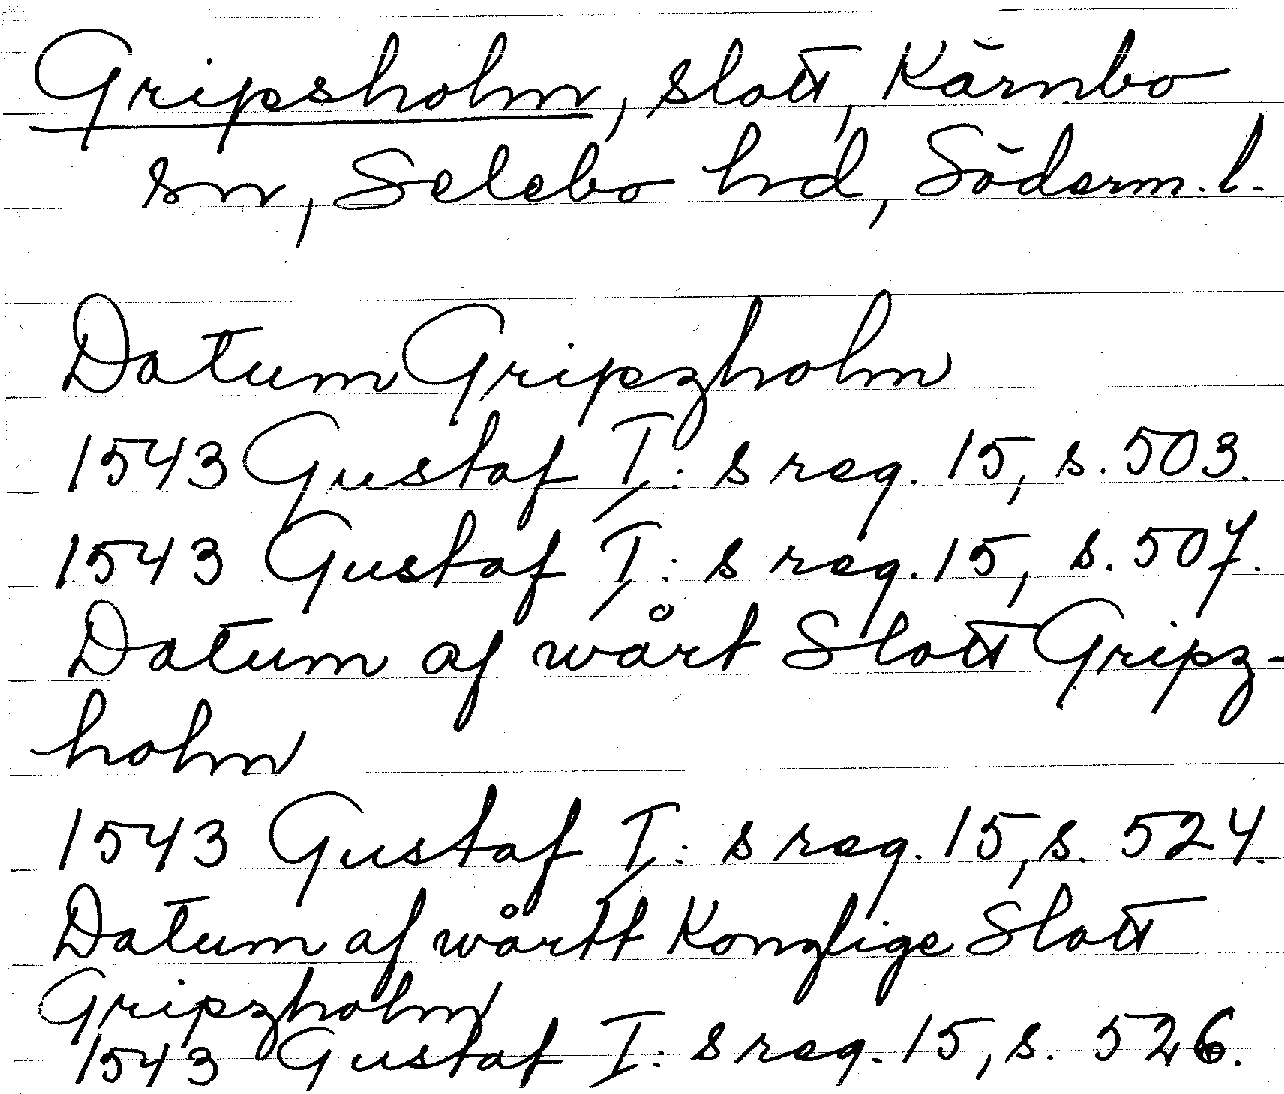 Gripsholm, slott, Kärnbo
sn, Selebo hd, Söderm. l.
Datum Gripzholm
1543 Gustaf I: s reg. 15, s. 503.
1543 Gustaf I: s reg. 15, s. 507.
Datum af wårt Slott Gripz-
holm
1543 Gustaf I: s reg. 15, s. 524.
Datum af wårtt Konglige Slott
Gripzholm
1543 Gustaf I: s reg. 15, s. 526.